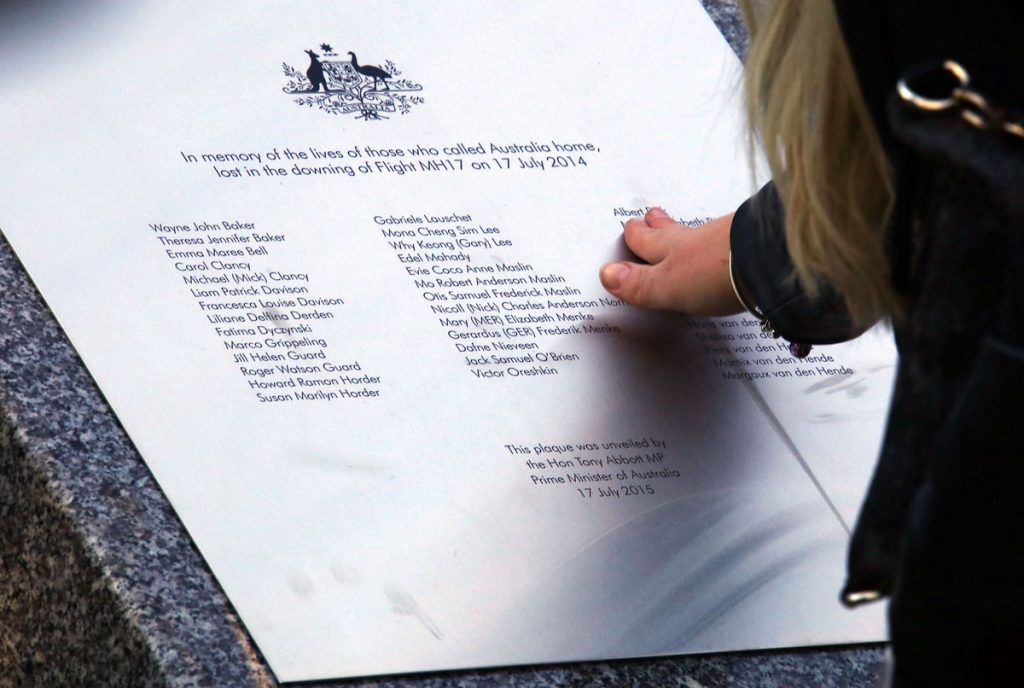 AUSTRALIA
In memory of the lives of those who called Australia home,
lost in the downing of Flight MH17 on 17 July 2014
Wayne John Baker
Theresa Jennifer Baker
Emma Maree Bell
Carol Clancy
Michael (Mick) Clancy
Liam Patrick Davison
Francesca Louise Davison
Liliane Delina Derden
Fatima Dyczynski
Marco Grippeling
Jill Helen Guard
Roger Watson Guard
Howard Ramon Horder
Susan Marilyn Horder
Gabriele Lauschet
Mona Cheng Sim Lee
Why Keong (Gary) Lee
Edel Mahady
Evie Coco Anne Maslin
Mo Robert Anderson Maslin
Otis Samuel Frederick Maslin
Nicoll (Nick) Charles Anderson
Mary (MER) Elizabeth Menke
Gerardus (GER) Frederik Menke
Dafne Nieveen
Jack Samuel O'Brien
Victor Oreshkin
Albert
van den
Piers van den
Marnix van den Hende
Margaux van den Hende
This plaque was unveiled by
the Hon Tony Abbott MP
Prime Minister of Australia
17 July 2015